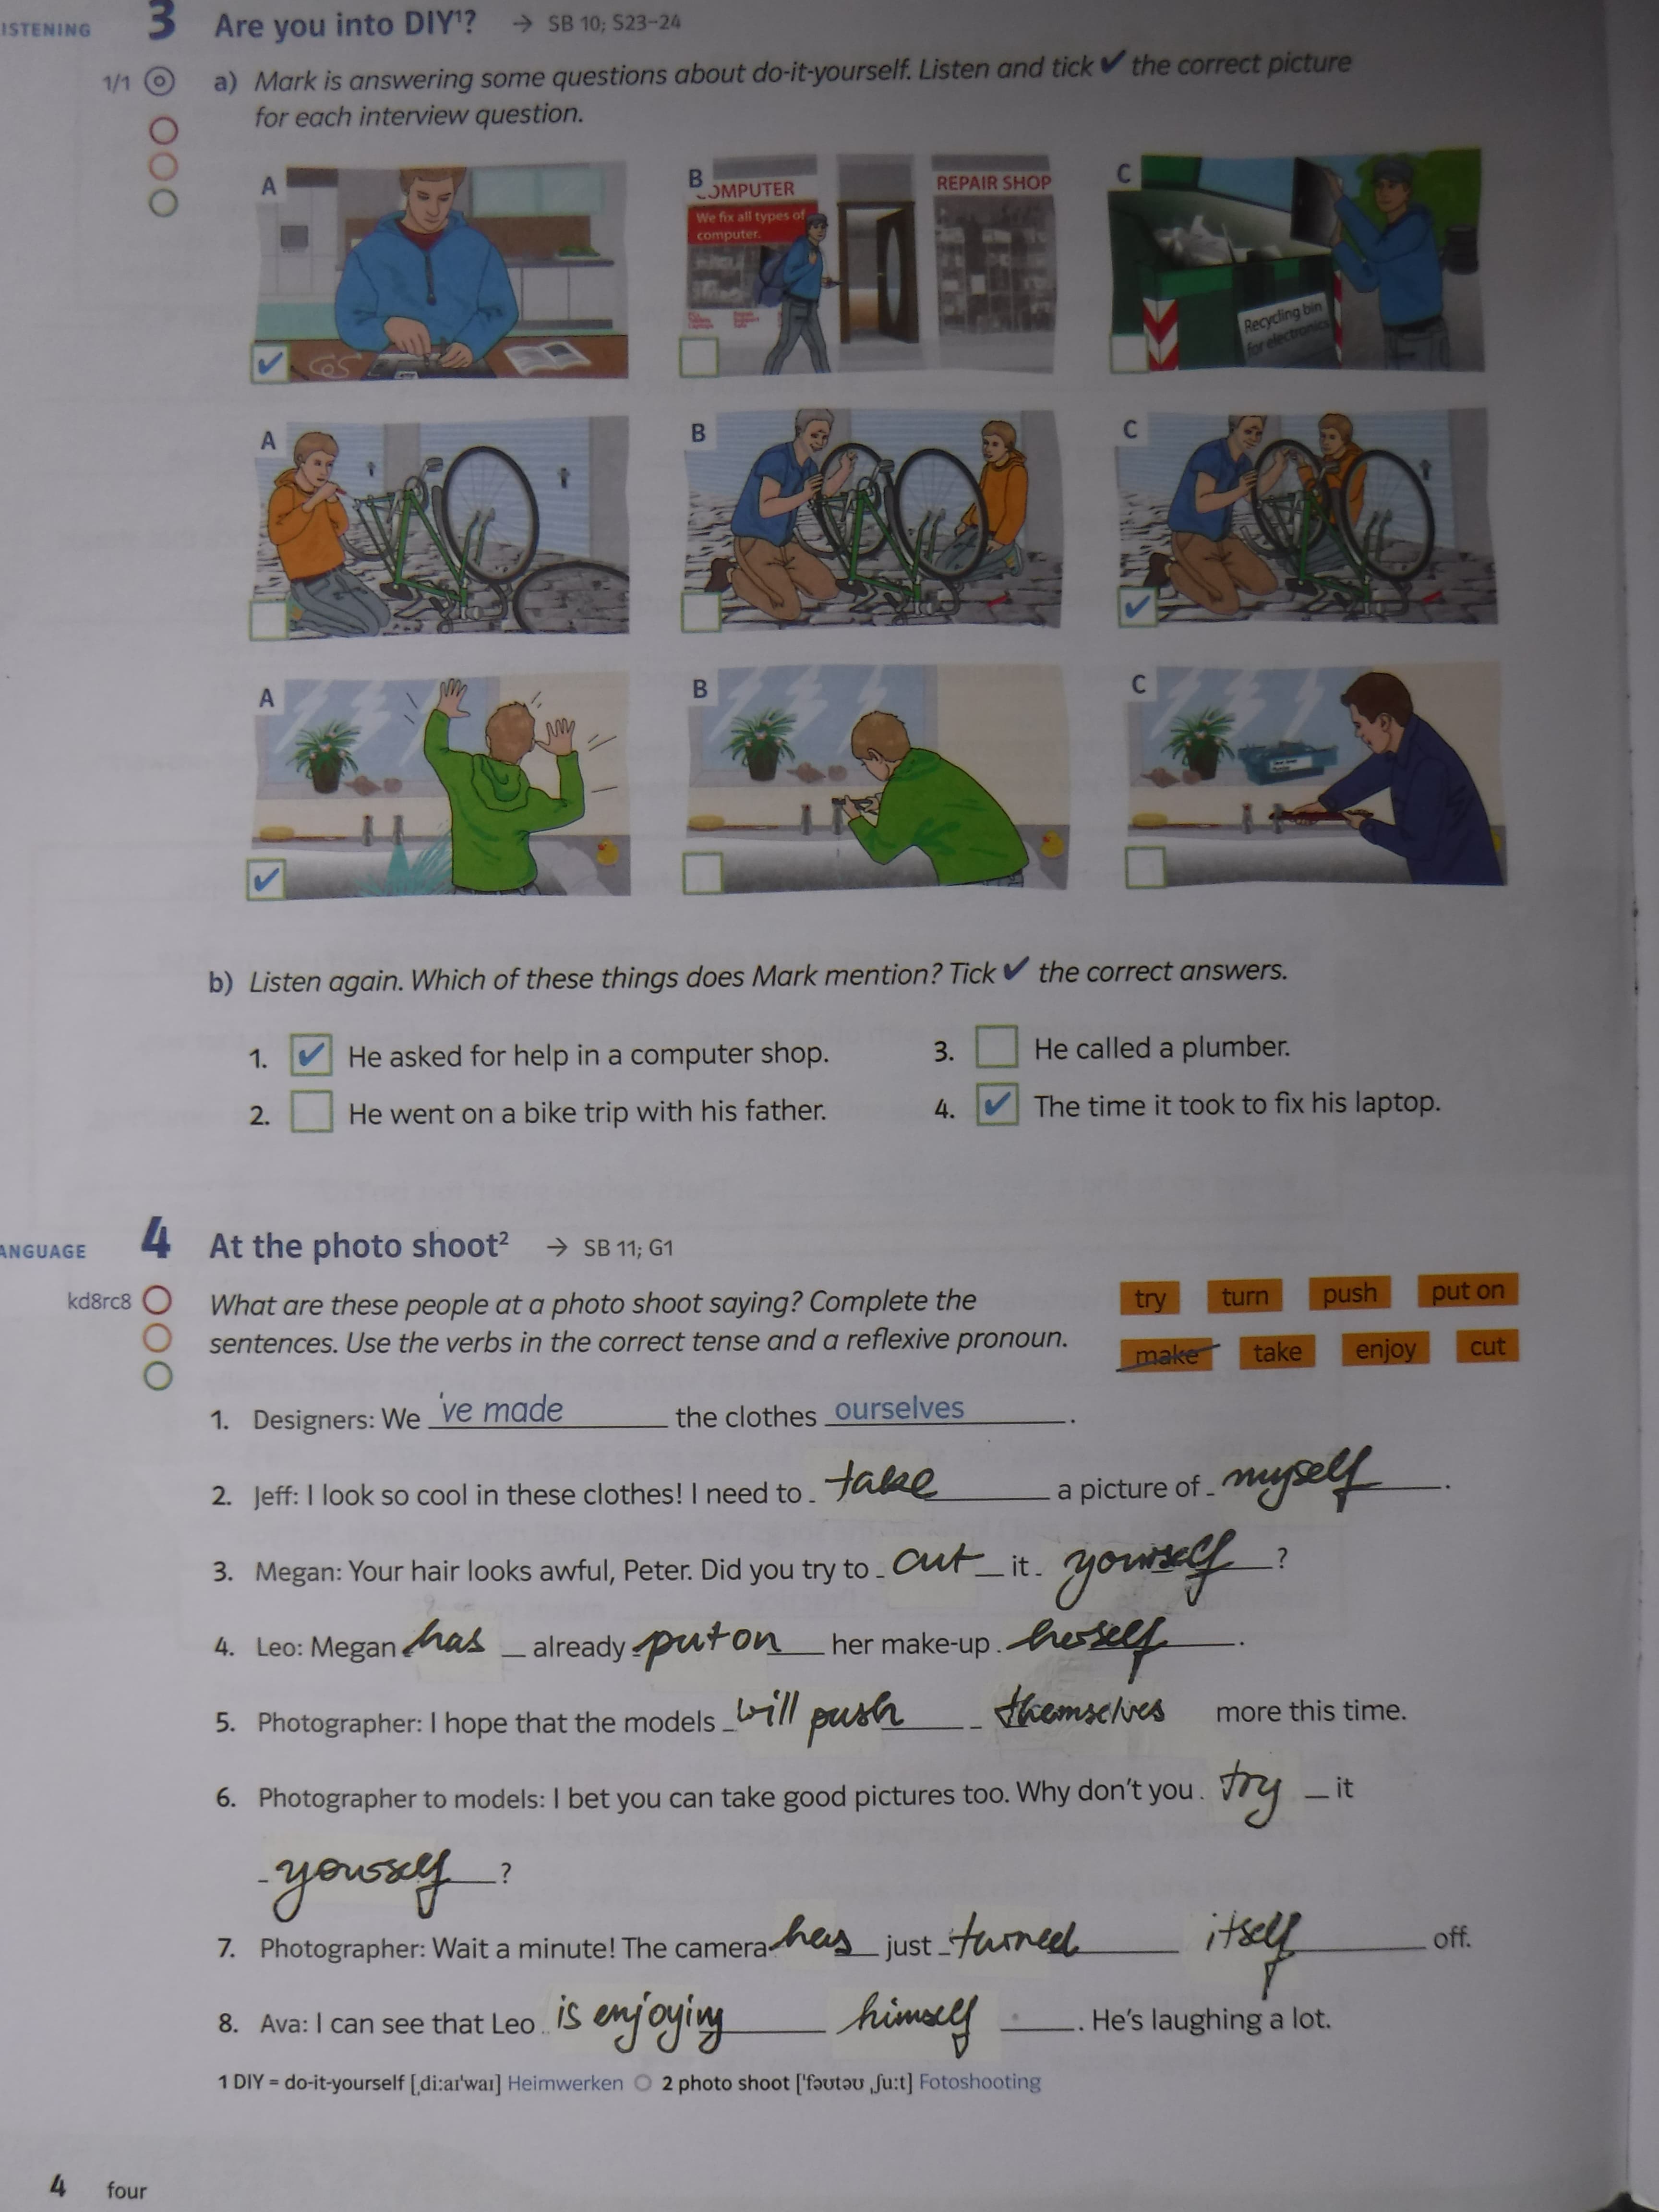 ISTENING 3 Are you into DIY¹? → SB 10; S23–24
1/1 a) Mark is answering some questions about do-it-yourself. Listen and tick ✔ the correct picture
for each interview question.
A B C
COMPUTER REPAIR SHOP
We fix all types of
computer.
Recycling bin
for electronics
✔
A B C
✔
A B C
✔
b) Listen again. Which of these things does Mark mention? Tick ✔ the correct answers.
1. ✔ He asked for help in a computer shop. 3. He called a plumber.
2. He went on a bike trip with his father. 4. ✔ The time it took to fix his laptop.
ANGUAGE 4 At the photo shoot² → SB 11; G1
kd8rc8 What are these people at a photo shoot saying? Complete the
sentences. Use the verbs in the correct tense and a reflexive pronoun.
try turn push put on
make take enjoy cut
1. Designers: We 've made the clothes ourselves.
2. Jeff: I look so cool in these clothes! I need to take a picture of myself.
3. Megan: Your hair looks awful, Peter. Did you try to cut it yourself?
4. Leo: Megan has already put on her make-up herself.
5. Photographer: I hope that the models will push themselves more this time.
6. Photographer to models: I bet you can take good pictures too. Why don't you try it
yourself?
7. Photographer: Wait a minute! The camera has just turned itself off.
8. Ava: I can see that Leo is enjoying himself. He's laughing a lot.
1 DIY = do-it-yourself [ˌdiːaɪˈwaɪ] Heimwerken 2 photo shoot [ˈfəʊtəʊ ˌʃuːt] Fotoshooting
4 four